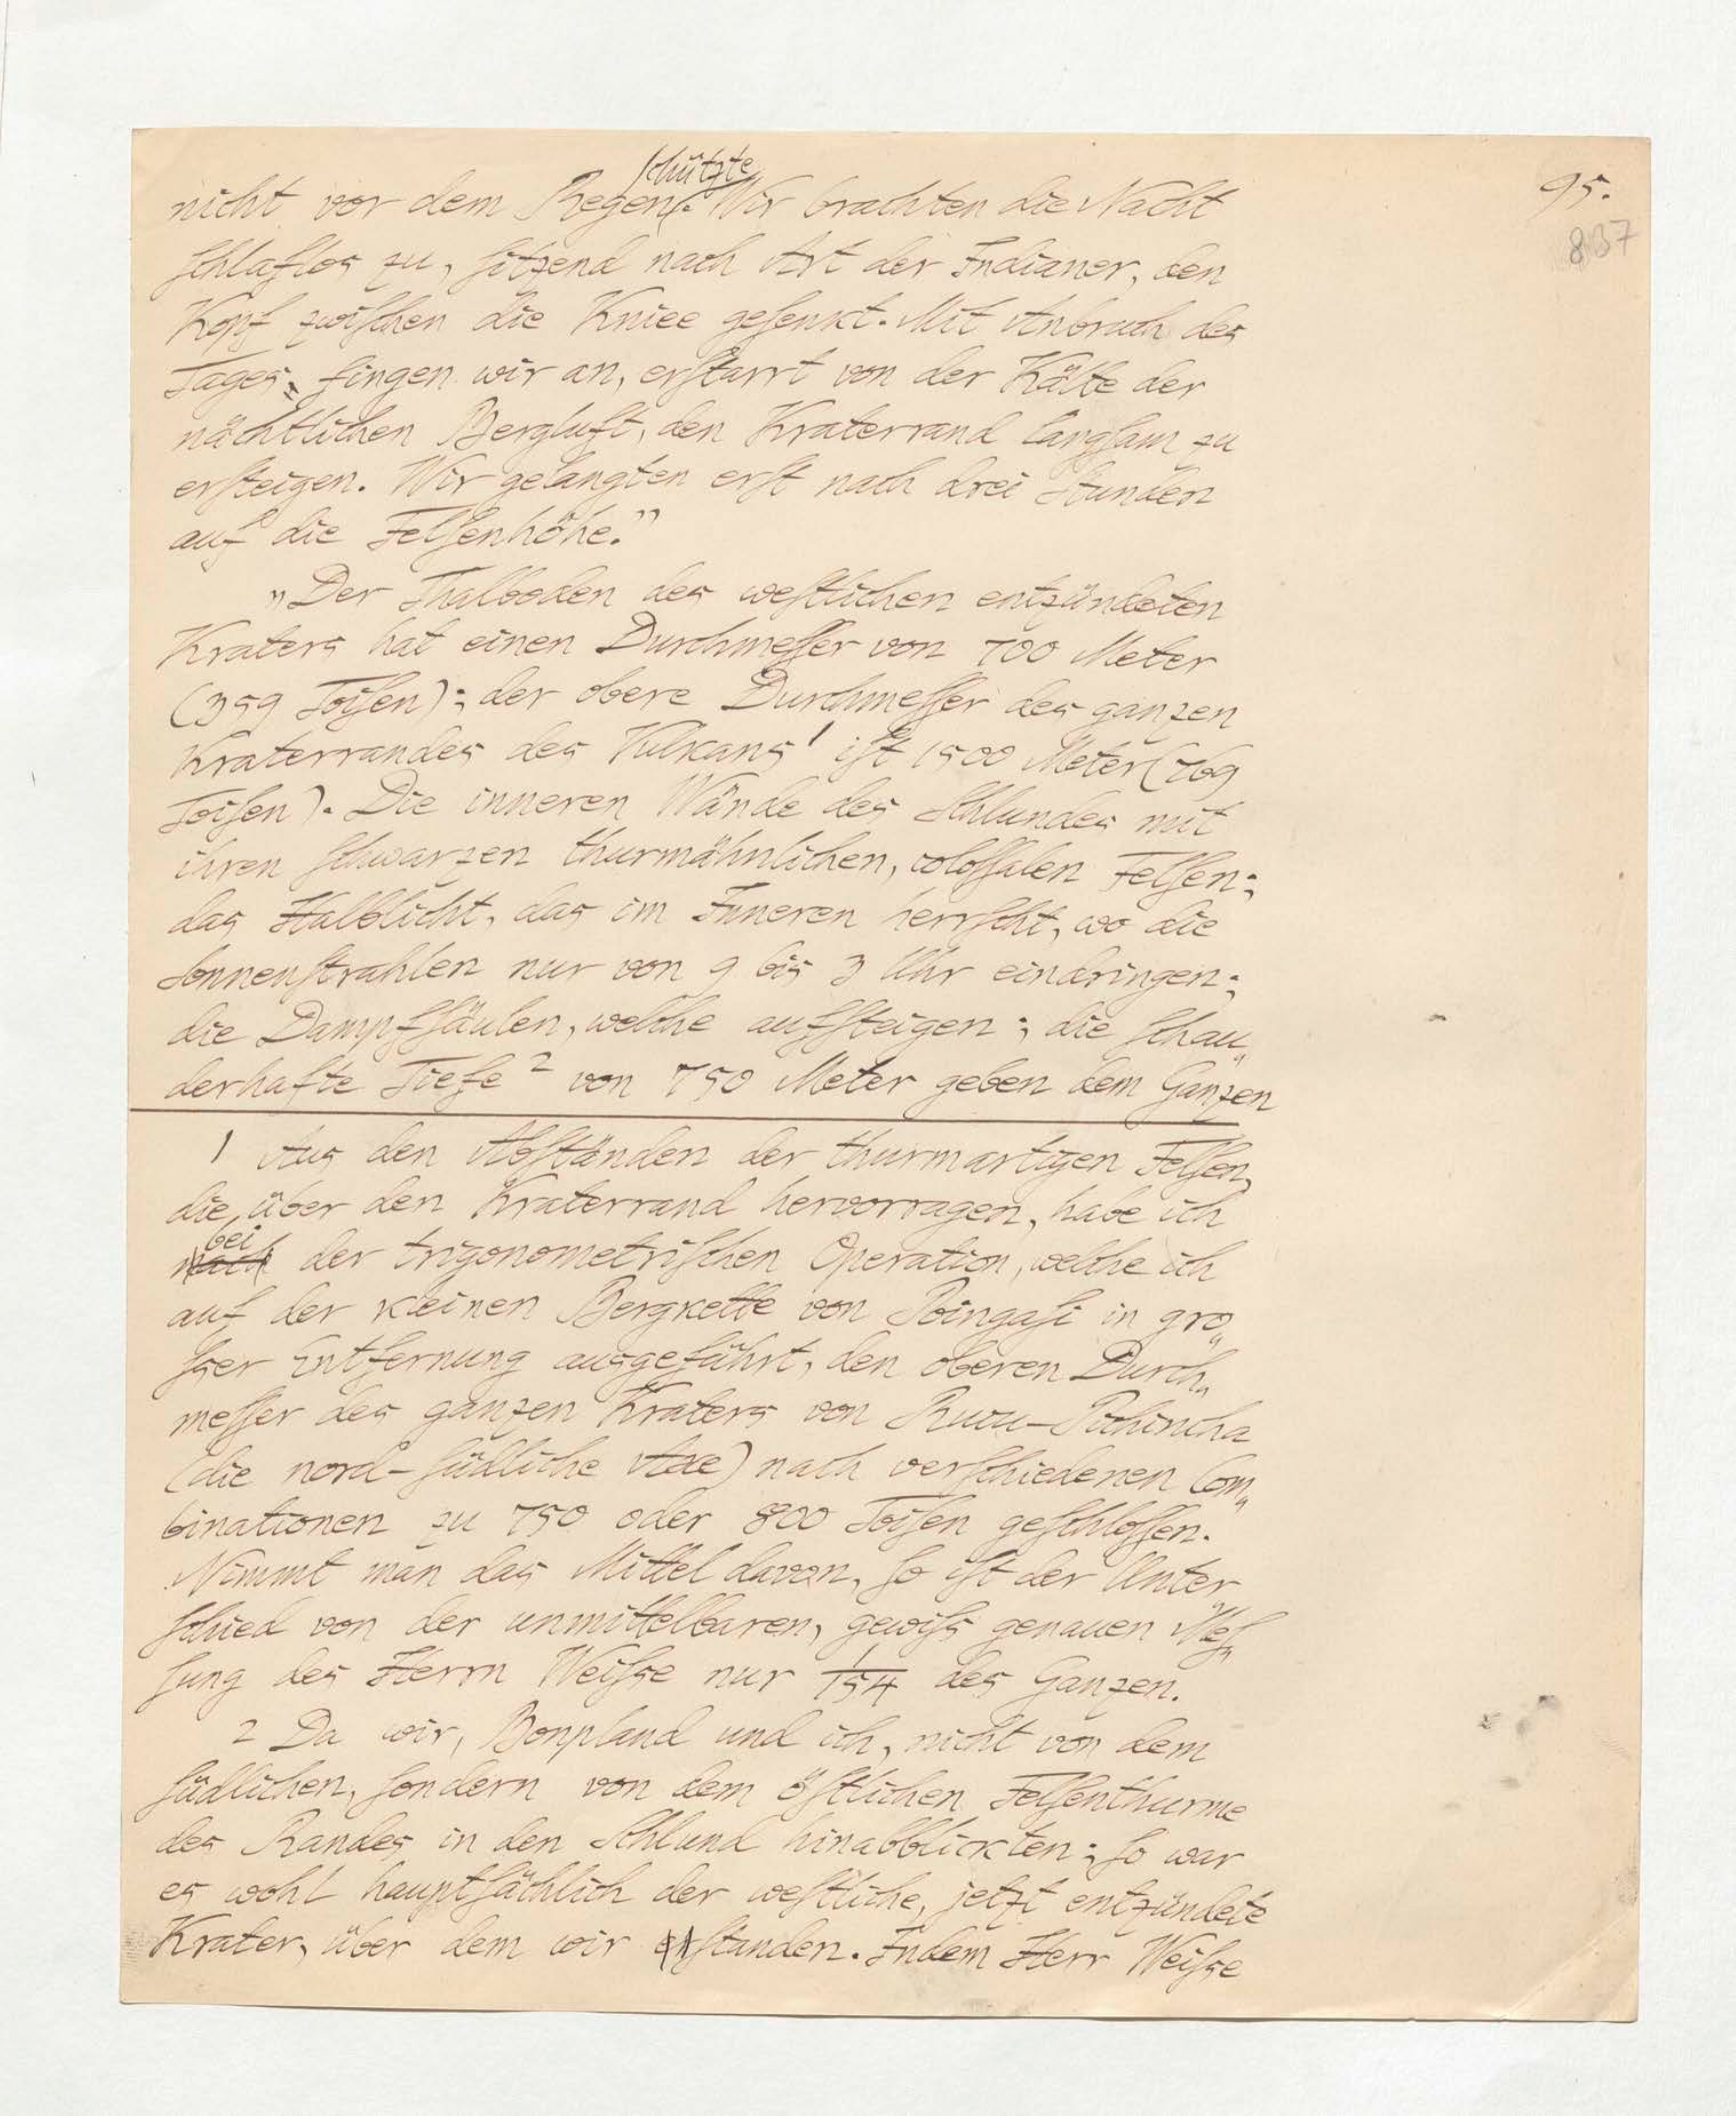 95.
837
schützte
nicht vor dem Regen. Wir brachten die Nacht
schlaflos zu, sitzend nach Art der Indianer, den
Kopf zwischen die Kniee gesenkt. Mit Anbruch des
Tages, fingen wir an, erstarrt von der Kälte der
nächtlichen Bergluft, den Kraterrand langsam zu
ersteigen. Wir gelangten erst nach drei Stunden
auf die Felsenhöhe."
„Der Thalboden des westlichen entzündeten
Kraters hat einen Durchmesser von 700 Meter
(359 Toisen); der obere Durchmesser des ganzen
Kraterrandes des Vulkans 1 ist 1500 Meter (769
Toisen). Die inneren Wände des Schlundes mit
ihren schwarzen thurmähnlichen, colossalen Felsen;
das Halblicht, das im Inneren herrscht, wo die
Sonnenstrahlen nur von 9 bis 3 Uhr eindringen;
die Dampfsäulen, welche aufsteigen; die schau„
derhafte Tiefe 2 von 750 Meter geben dem Ganzen
1 Aus den Abständen der thurmartigen Felsen,
die, über den Kraterrand hervorragen, habe ich
bei
nach der trigonometrischen Operation, welche ich
auf der kleinen Bergkette von Poingasi in gro„
sser Entfernung ausgeführt, den oberen Durch„
messer des ganzen Kraters von Rucu-Pichincha
(die nord-südliche Axe) nach verschiedenen Com„
binationen zu 750 oder 800 Toisen geschlossen.
Nimmt man das Mittel davon, so ist der Unter„
schied von der unmittelbaren, gewiss genauen Mes„
sung des Herrn Weisse nur 1/154 des Ganzen.
2 Da wir, Bonpland und ich, nicht von dem
südlichen, sondern von dem östlichen Felsenthurme
des Randes in den Schlund hinabblickten; so war
es wohl hauptsächlich der westliche, jetzt entzündete
Krater, über dem wir standen. Indem Herr Weisse